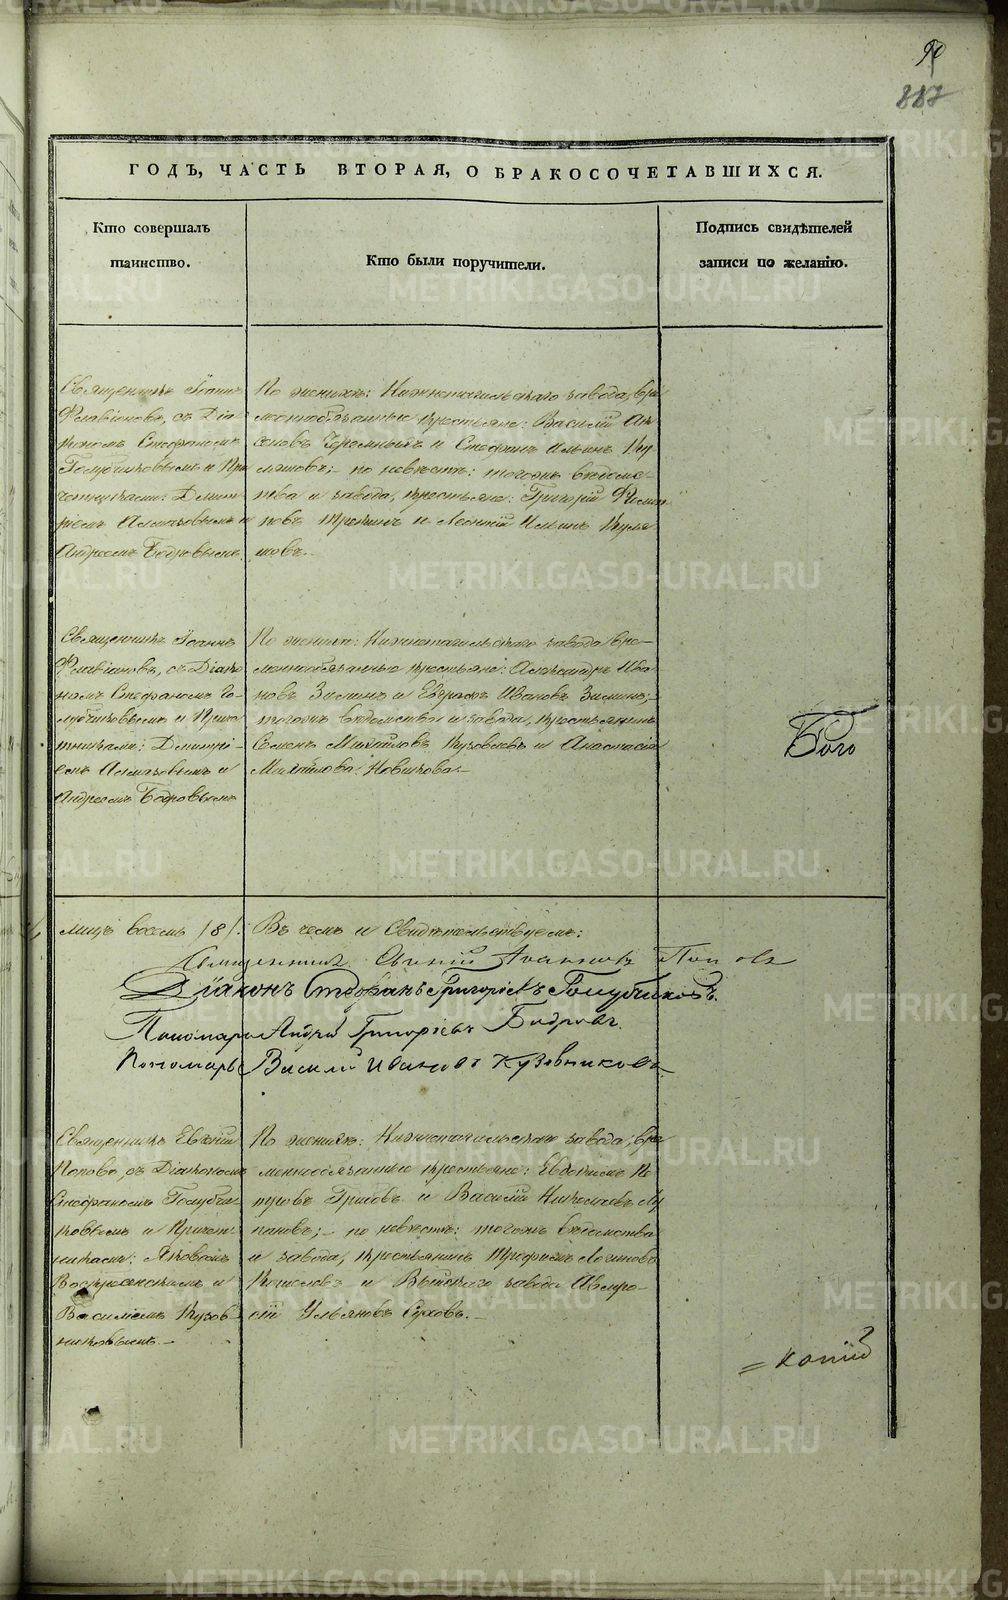 90
887
ГОДЪ, ЧАСТЬ ВТОРАЯ, О БРАКОСОЧЕТАВШИХСЯ.
Кто совершалъ
таинство.
Кто были поручители.
Подпись свидѣтелей
записи по желанію.
Священникъ Іоаннъ
Флавіановъ, съ Діа-
кономъ Стефаномъ
Голубчиковымъ и При-
четниками: Димит-
ріемъ Алмазовымъ и
Андреемъ Бодровымъ.
По женихѣ: Нижнетагильскаго завода, вре-
меннообязанные крестьяне: Василій
и Стефанъ Ильинъ Ку-
ляшовъ; по невѣстѣ: тогожъ вѣдомс-
тва и завода, крестьяне: Григорій Филип-
повъ и Леонтій Ильинъ Куля-
шовъ.
Священникъ Іоаннъ
Флавіановъ, съ Діако-
номъ Стефаномъ Го-
лубчиковымъ и Приче-
тниками: Димитрі-
емъ Алмазовымъ и
Андреемъ Бодровымъ
По женихѣ: Нижнетагильскаго завода вре-
меннообязанные крестьяне: Александръ Ива-
новъ Зиминъ и Евграфъ Ивановъ Зиминъ;
тогожъ вѣдомства и завода, крестьянинъ
Семенъ Михайловъ и Анастасія
Михайлова Новикова.
лицъ восемь /8/.
Въ чемъ и Свидѣтельствуемъ:
Священникъ Евгеній Іоанновъ Поповъ
Діаконъ Стефанъ Григоріевъ Голубчиковъ.
Пономарь Андрей Григорьевъ Бодровъ.
Пономарь Василій Ивановъ Кузовниковъ
Священникъ Евгеній
Поповъ, съ Діакономъ
Стефаномъ Голубчи-
ковымъ и Причет-
никами: Яковомъ
и
Василіемъ Кузов-
никовымъ.
По женихѣ: Нижнетагильскаго завода, вре-
меннообязанные крестьяне: Евдокимъ
и Василій
по невѣстѣ: тогожъ вѣдомства
и завода, крестьянинъ Трофимъ Логиновъ
и Выйскаго завода Амвро-
сій Ульяновъ
копію